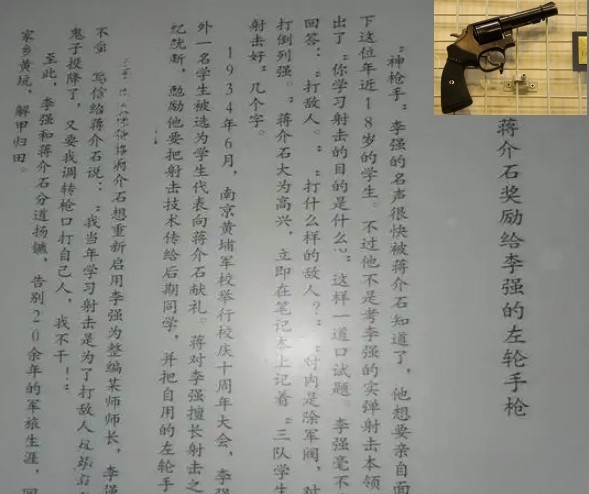 蒋介石奖励给李强的左轮手枪
“神枪手”李强的名声很快被蒋介石知道了，他想要亲自面
下这位年近18岁的学生。不过他不是考李强的实弹射击本领
出了“你学习射击的目的是什么？”这样一道口试题。李强毫不
回答：“打敌人。”“打什么样的敌人？”“对内是除军阀，对
打倒列强。”蒋介石大为高兴，立即在笔记本上记着“三队学生
射击好”几个字。
1934年6月，南京黄埔军校举行校庆十周年大会，李强
外一名学生被选为学生代表向蒋介石献礼。蒋对李强擅长射击之
忆犹新，勉励他要把射击技术传给后期同学，并把自用的左轮手
蒋介石想重新启用李强为整编某师师长，李强
不尝 写信给蒋介石说：“我当年学习射击是为了打敌人
鬼子投降了，又要我调转枪口打自己人，我不干！”
至此，李强和蒋介石分道扬镳，告别20余年的军旅生涯，回
家乡黄坑，解甲归田。